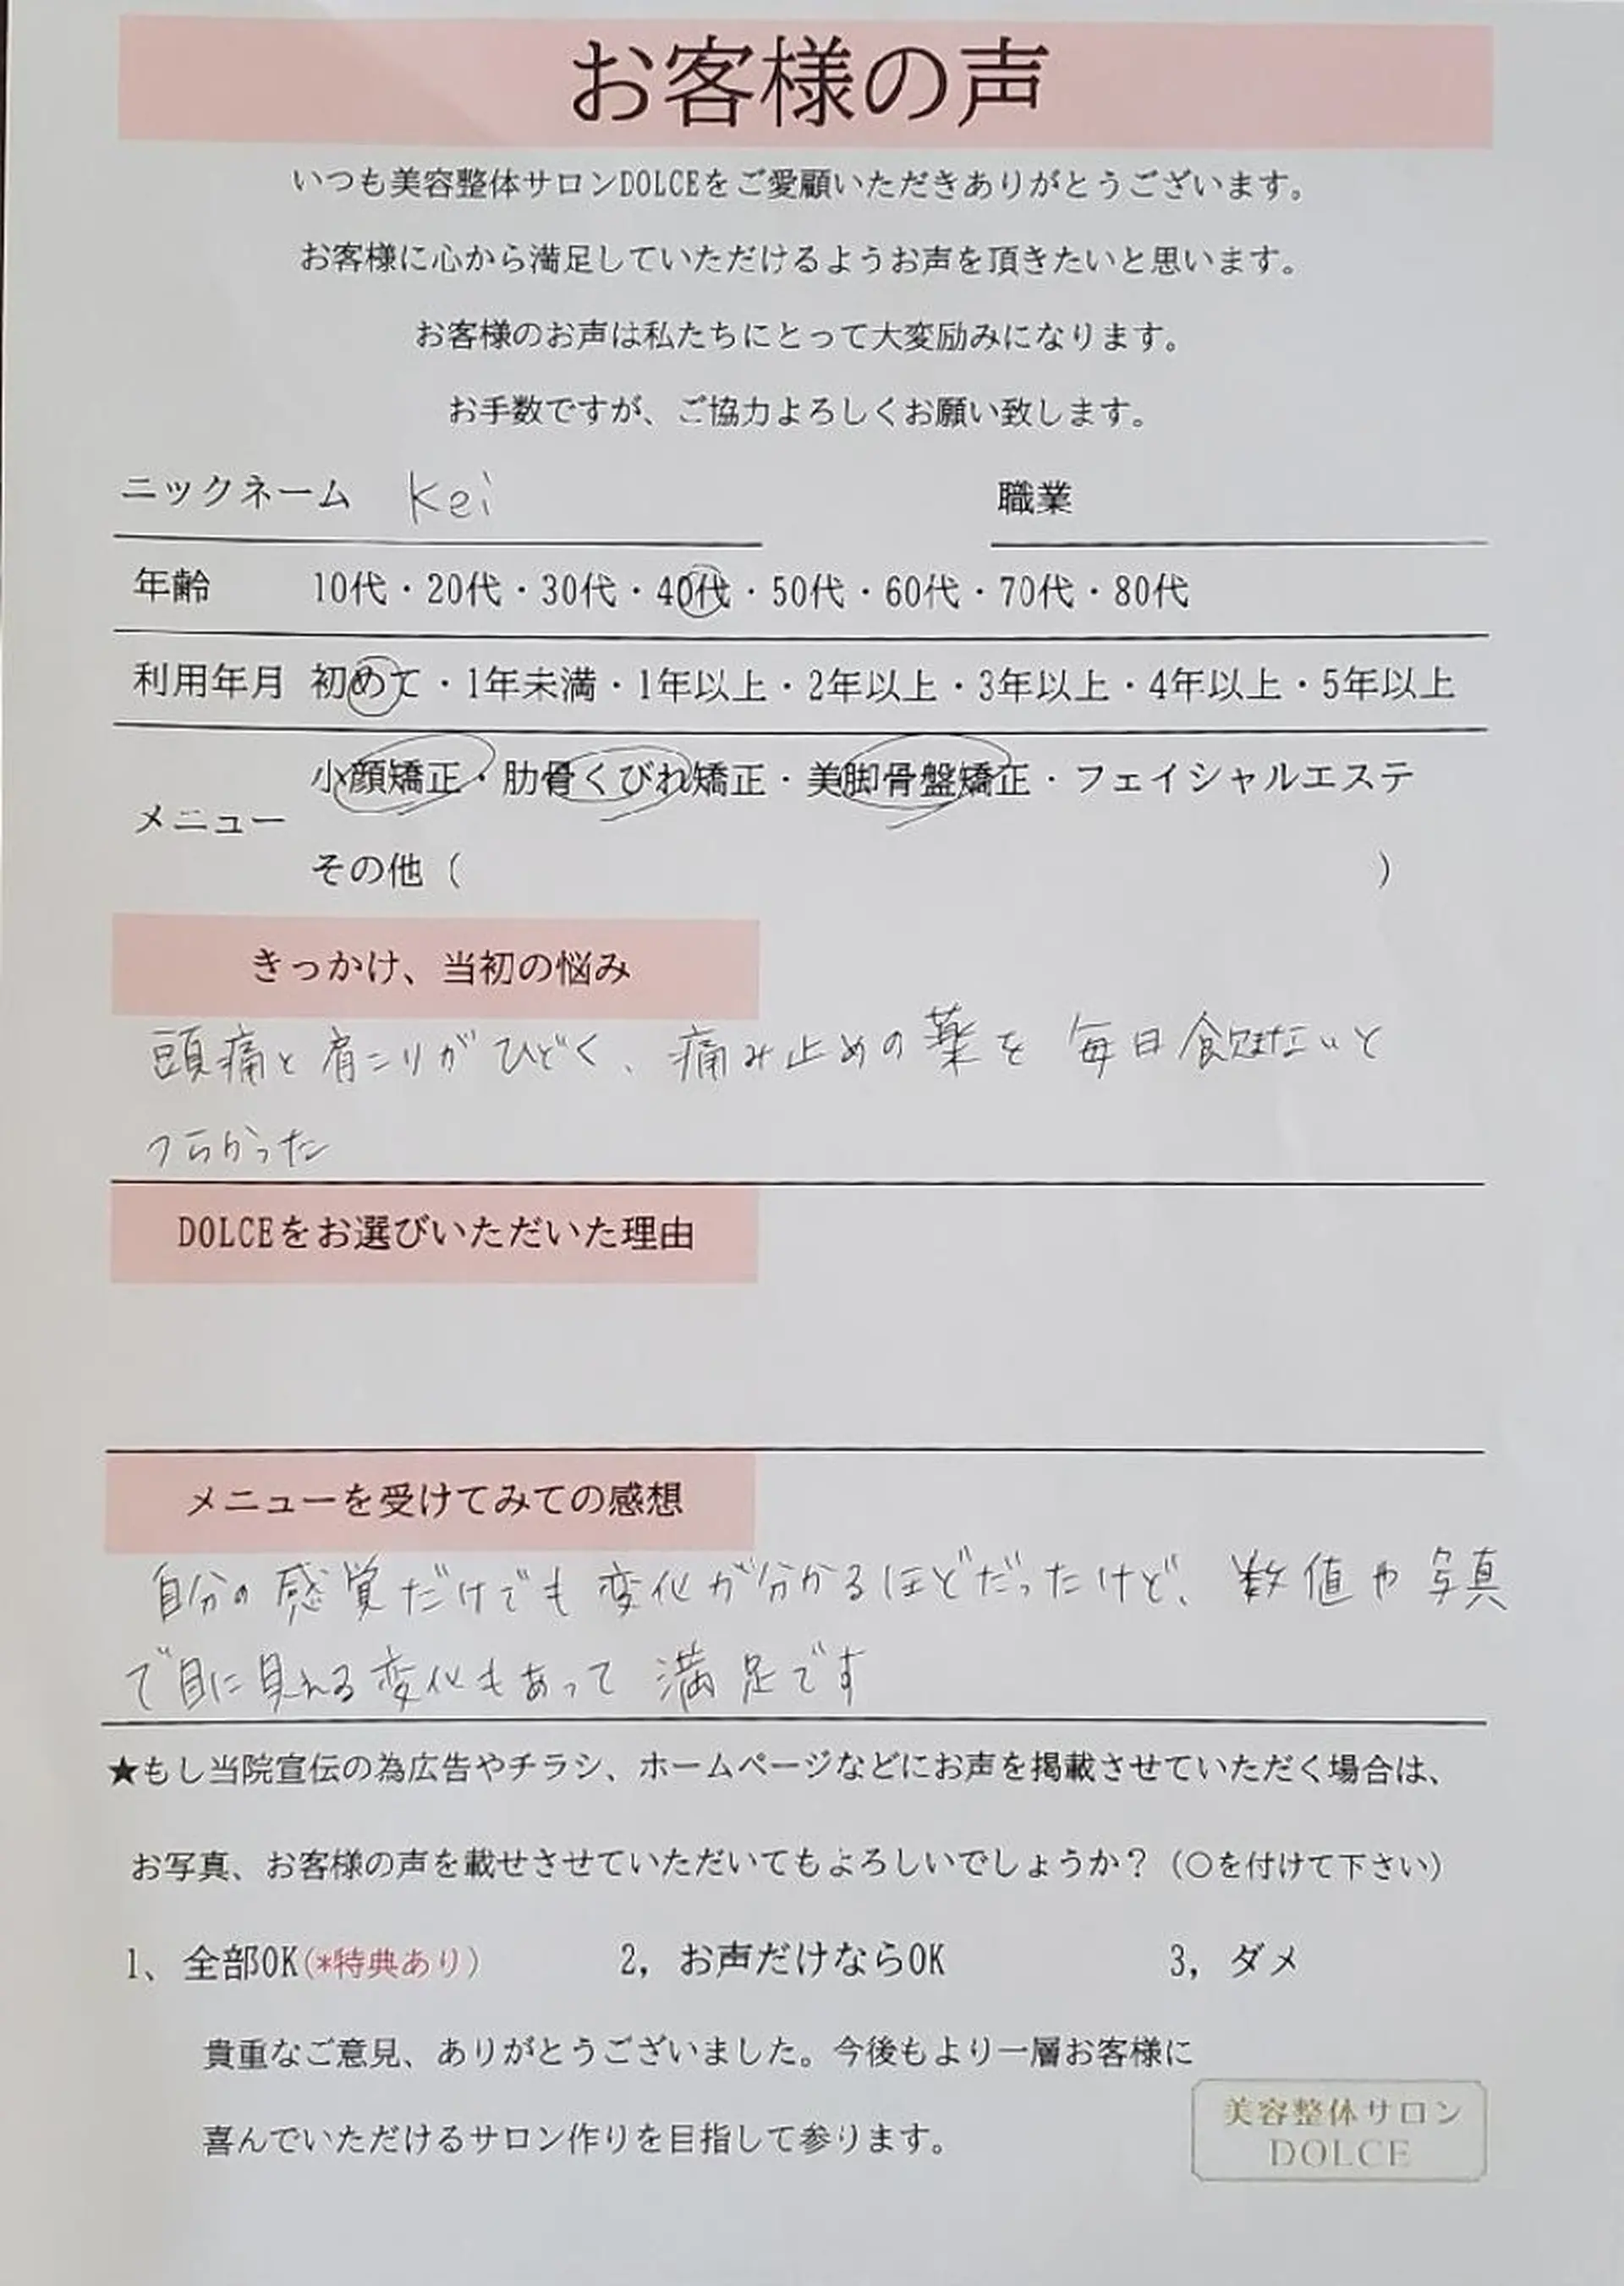 お客様の声
いつも美容整体サロンDOLCEをご愛顧いただきありがとうございます。
お客様に心から満足していただけるようお声を頂きたいと思います。
お客様のお声は私たちにとって大変励みになります。
お手数ですが、ご協力よろしくお願い致します。
ニックネーム kei 職業
年齢 10代・20代・30代・40代・50代・60代・70代・80代
利用年月 初めて・1年未満・1年以上・2年以上・3年以上・4年以上・5年以上
メニュー 小顔矯正・肋骨くびれ矯正・美脚骨盤矯正・フェイシャルエステ
その他（ ）
きっかけ、当初の悩み
頭痛と肩こりがひどく、痛み止めの薬を毎日飲まないと
つらかった
DOLCEをお選びいただいた理由
メニューを受けてみての感想
自分の感覚だけでも変化が分かるほどだったけど、数値や写真
で目に見れる変化もあって満足です
★もし当院宣伝の為広告やチラシ、ホームページなどにお声を掲載させていただく場合は、
お写真、お客様の声を載せさせていただいてもよろしいでしょうか？（○を付けて下さい）
1、全部OK(*特典あり) 2，お声だけならOK 3，ダメ
貴重なご意見、ありがとうございました。今後もより一層お客様に
喜んでいただけるサロン作りを目指して参ります。
美容整体サロン
DOLCE